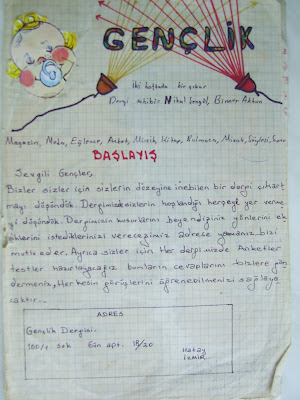 GENÇLİK
İki haftada bir çıkar
Dergi sahibi: Nihal Şengöl, Binnur Aktun
Magazin, Moda, Eğlence, Anket, Minik Kitap, Bulmaca, Mizah, Söyleşi,
BAŞLAYIŞ
Sevgili Gençler,
Bizler sizler için sizlerin düzeyine inebilen bir dergi çıkart
mayı düşündük. Dergimizde sizlerin hoşlandığı herşeye yer verme
yi düşündük. Dergimizin kusurlarını beğendiğiniz yönlerini ek
liklerini istediklerinizi vereceğimiz adrese yazmanız bizi
mutlu eder. Ayrıca sizler için Her dergimizde Anketler
testler hazırlayacağız bunların cevaplarını bizlere gön
dermeniz, Herkesin görüşlerini öğrenebilmenizi sağlaya
caktır..
ADRES
Gençlik Dergisi.
100/1 sok apt. 18/20
Hatay
İzmir